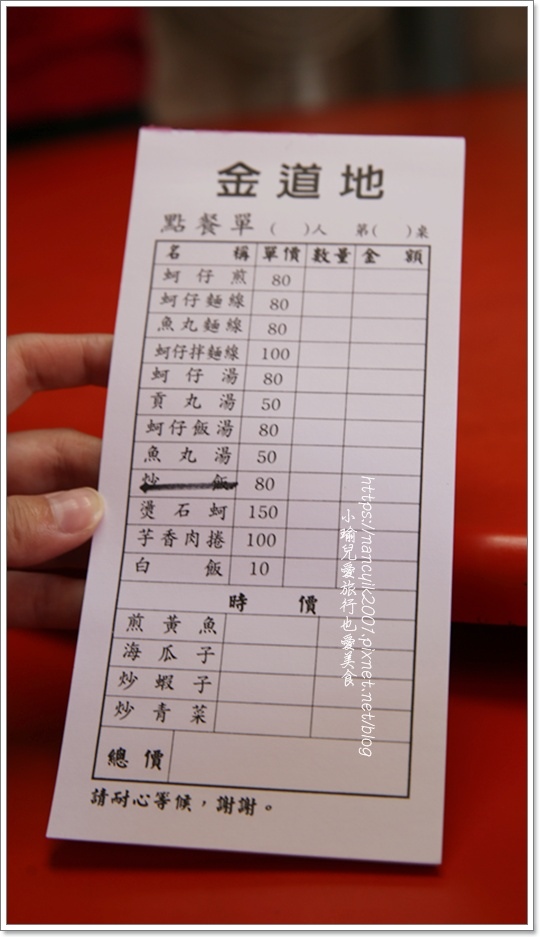 金道地
點餐單 ( )人 第( )桌
名稱 單價 數量 金額
蚵仔煎 80
蚵仔麵線 80
魚丸麵線 80
蚵仔拌麵線 100
蚵仔湯 80
貢丸湯 50
蚵仔飯湯 80
魚丸湯 50
炒飯 80
燙石蚵 150
芋香肉捲 100
白飯 10
時價
煎黃魚
海瓜子
炒蝦子
炒青菜
總價
請耐心等候，謝謝。
小瑜兒愛旅行也愛美食
https://nancyik2001.pixnet.net/blog